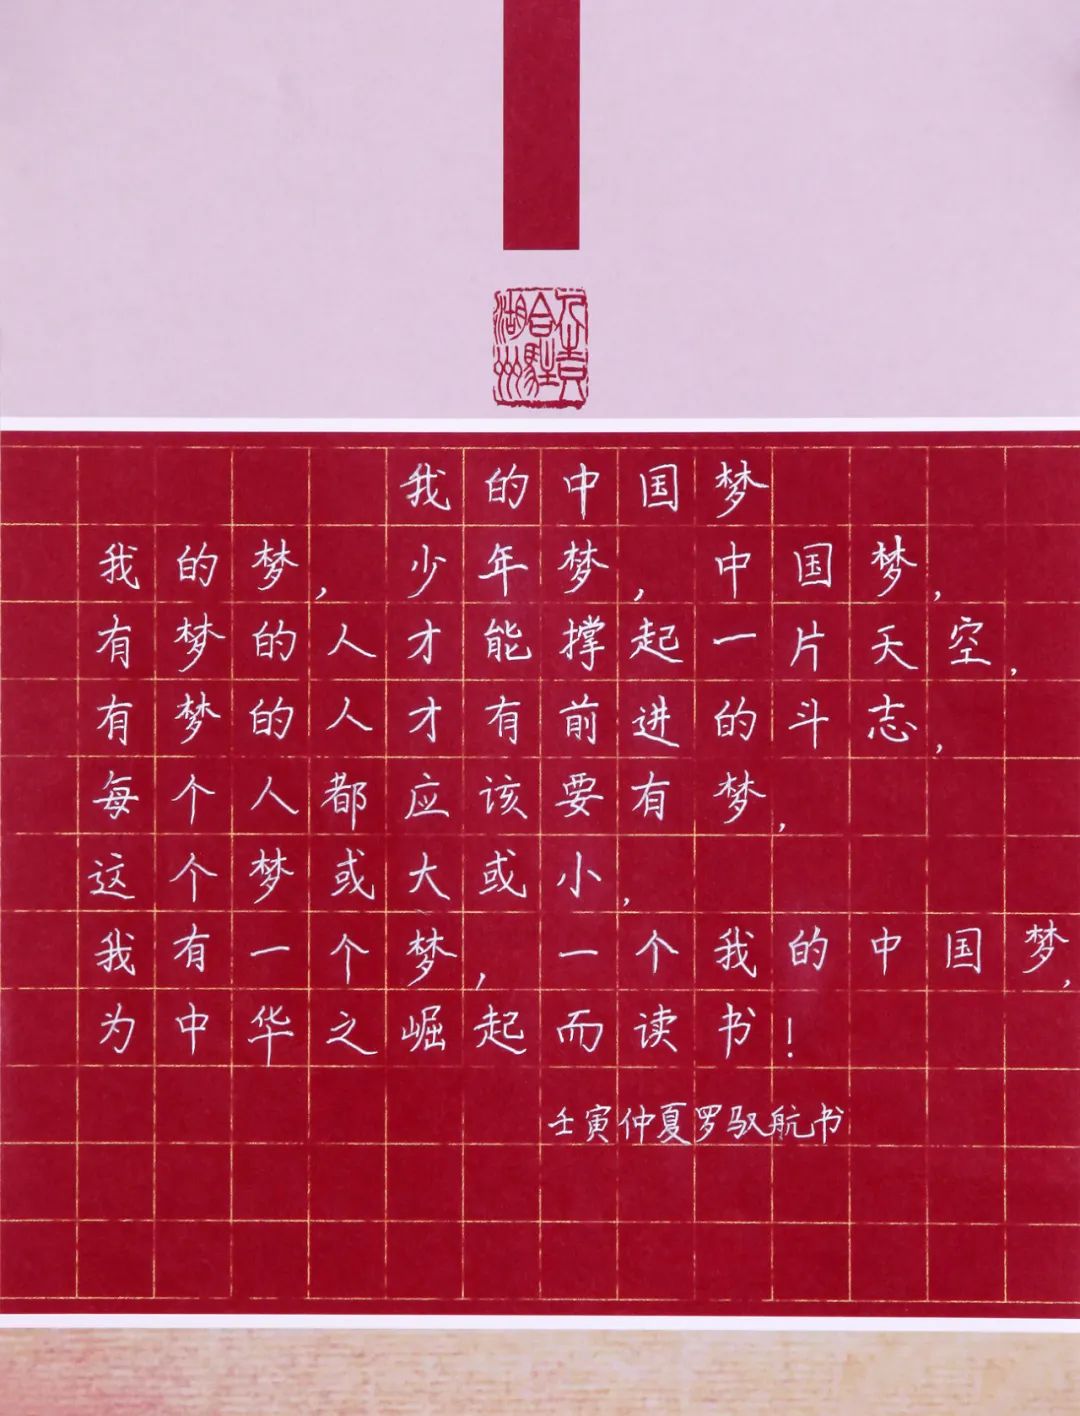 我的中国梦
我的梦,少年梦,中国梦,
有梦的人才能撑起一片天空,
有梦的人才有前进的斗志,
每个人都应该要有梦,
这个梦或大或小,
我有一个梦,一个我的中国梦,
为中华之崛起而读书!
壬寅仲夏罗驭航书